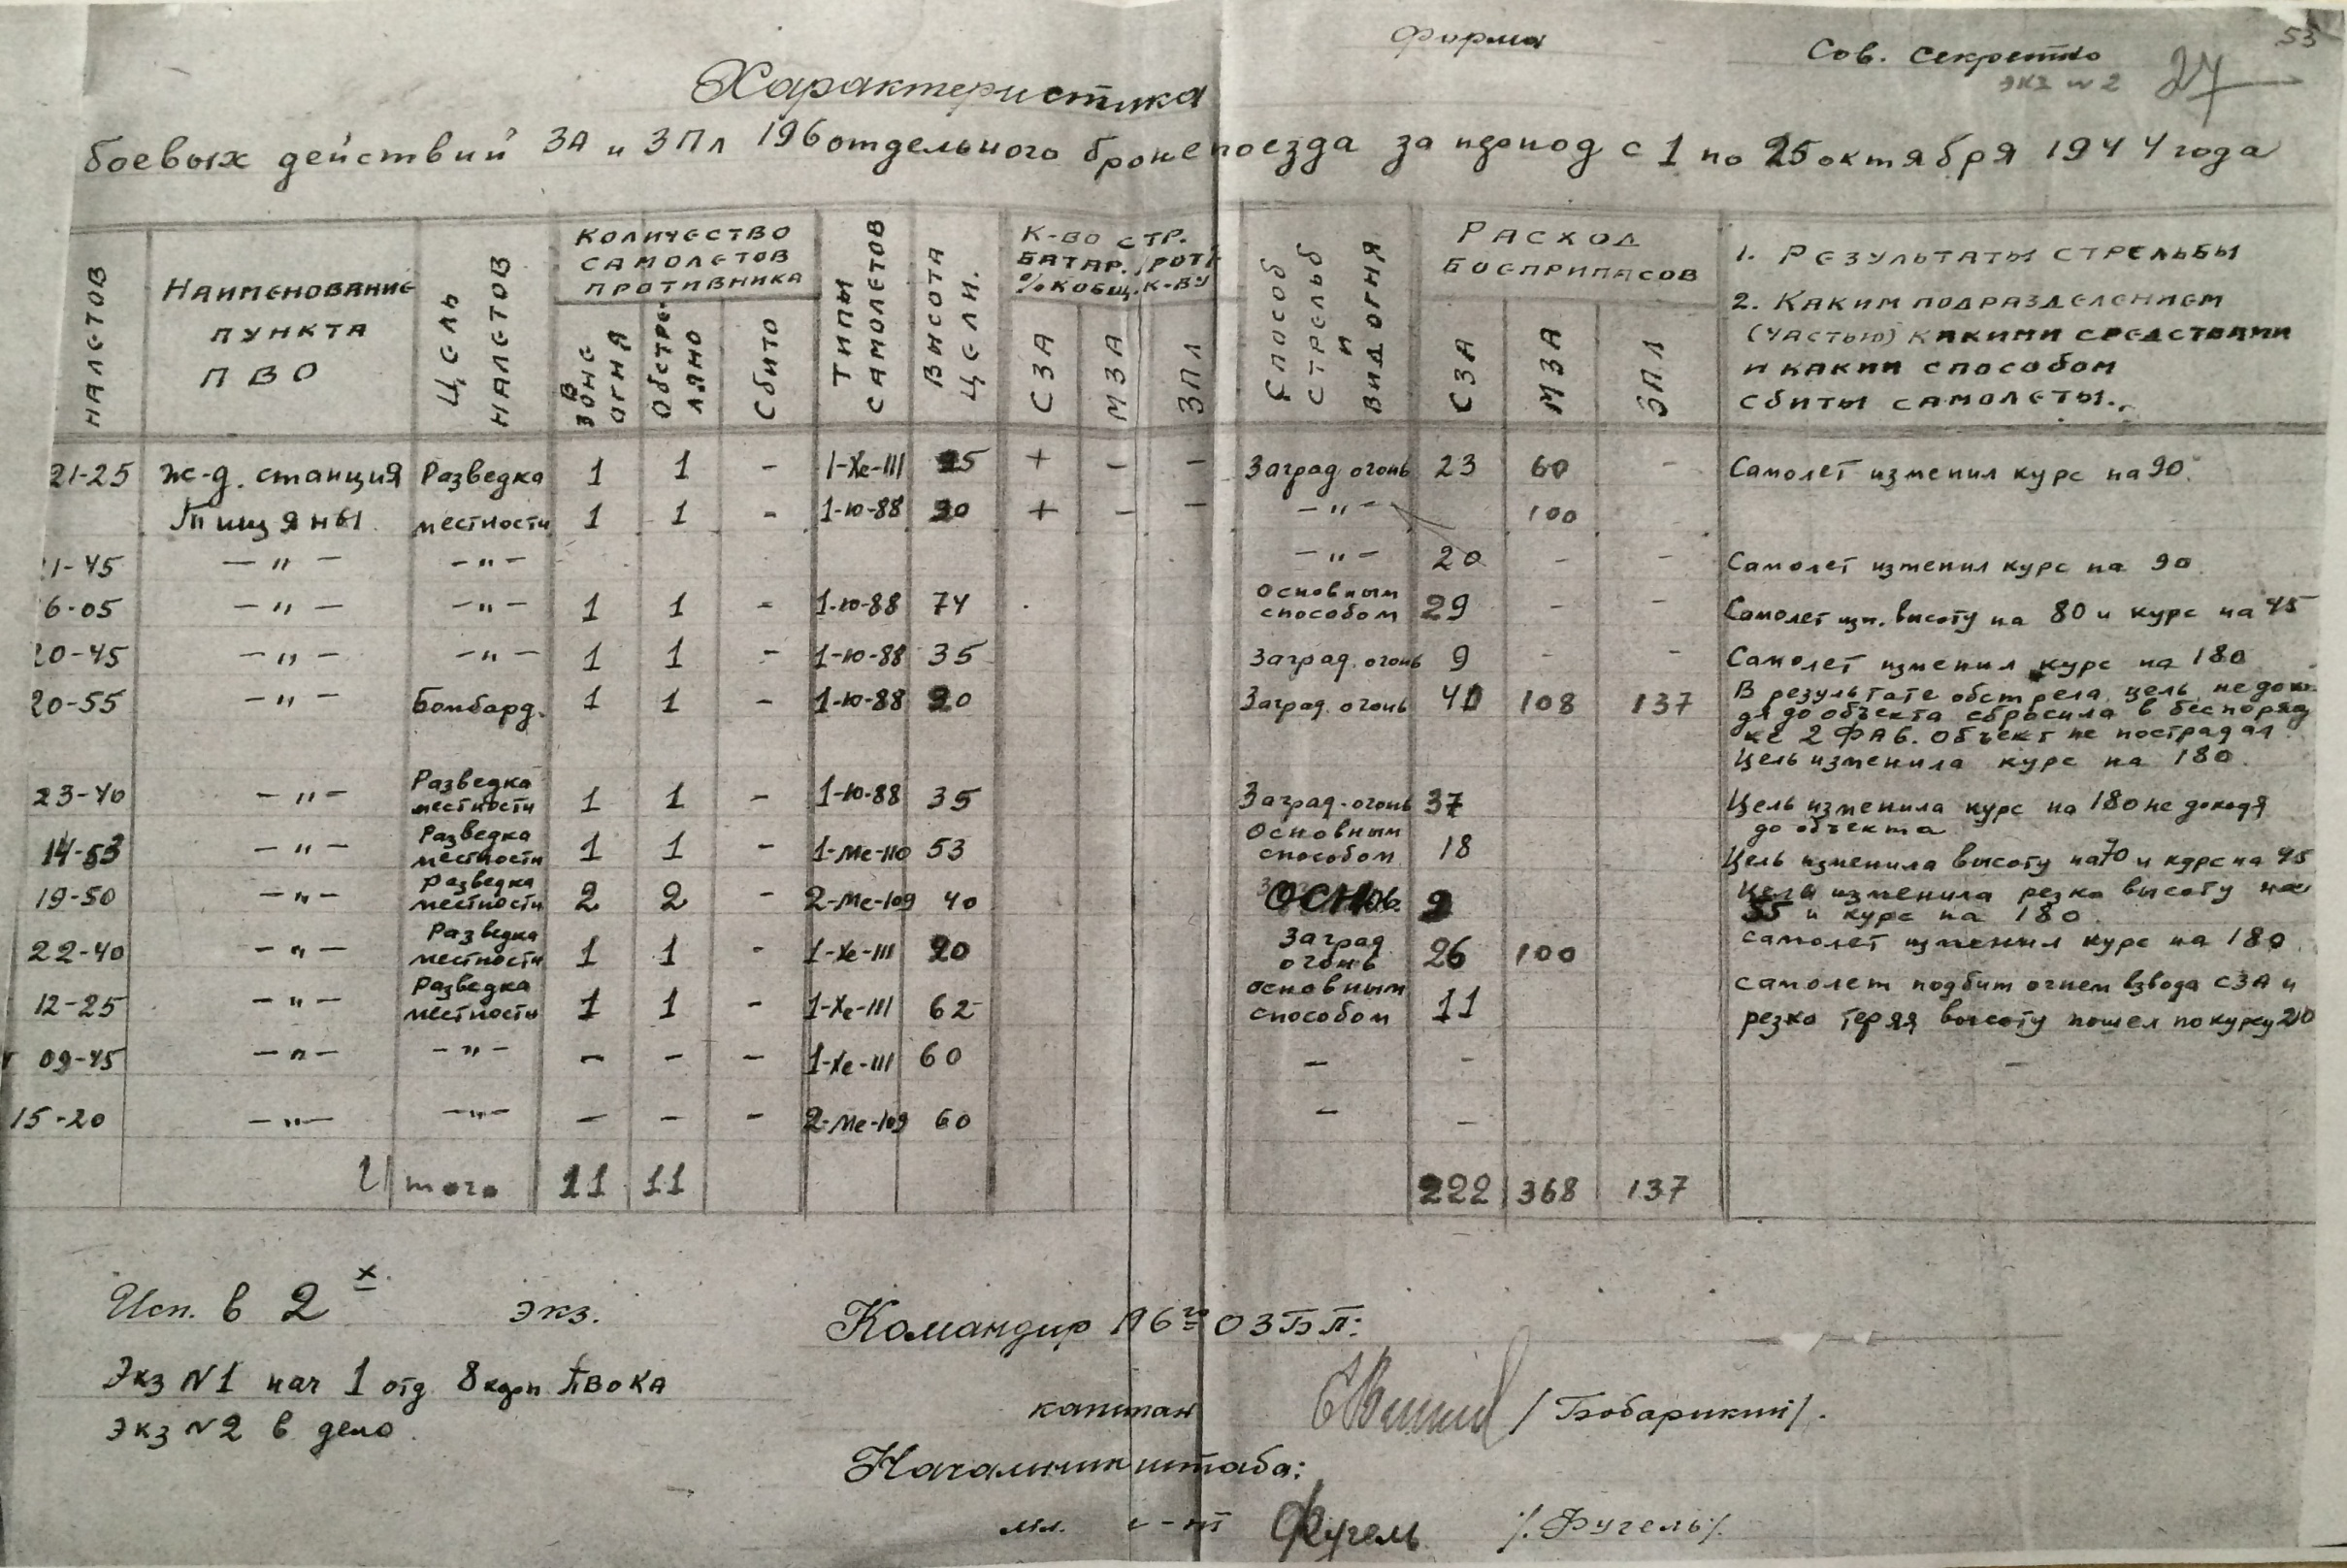 форма
Сов. секретно
экз № 2
27
53
Характеристика
боевых действий ЗА и ЗПл 196 отдельного бронепоезда за период с 1 по 25 октября 1944 года
НАЛЕТОВ
НАИМЕНОВАНИЕ ПУНКТА ПВО
ЦЕЛЬ НАЛЕТОВ
КОЛИЧЕСТВО САМОЛЕТОВ ПРОТИВНИКА
В ЗОНЕ ОГНЯ
ОБСТРЕЛЯНО
СБИТО
ТИПЫ САМОЛЕТОВ
ВИСОТА ЦЕЛИ.
К-ВО СТР. БАТАР. /РОТ/ % К ОБЩ. К-ВУ
СЗА
МЗА
ЗПЛ
СПОСОБ СТРЕЛЬБ И ВИД ОГНЯ
РАСХОД БОЕПРИПАСОВ
СЗА
МЗА
ЗПЛ
1. РЕЗУЛЬТАТЫ СТРЕЛЬБЫ
2. КАКИМ ПОДРАЗДЕЛЕНИЕМ
(ЧАСТЬЮ) КАКИМИ СРЕДСТВАМИ
И КАКИМ СПОСОБОМ
СБИТЫ САМОЛЕТЫ.
21-25 ж-д. станция Разведка 1 1 - 1-Хе-111 25 + - - Заград огонь 23 60 - Самолет изменил курс на 90.
Тищяны местности 1 1 - 1-ю-88 20 + - - -"- 100
1-45 -"- -"- -"- 20 - - Самолет изменил курс на 90
6-05 -"- -"- 1 1 - 1-ю-88 74 Основным способом 29 - - Самолет изм. высоту на 80 и курс на 45
20-45 -"- -"- 1 1 - 1-ю-88 35 Заград. огонь 9 - - Самолет изменил курс на 180
20-55 -"- Бомбард. 1 1 - 1-ю-88 20 Заград. огонь 40 108 137 В результате обстрела цель не дохо
дя до объекта сбросила в беспоряд
ке 2 ФАБ. Объект не пострадал.
Цель изменила курс на 180.
23-40 -"- Разведка местности 1 1 - 1-ю-88 35 Заград. огонь 37 Цель изменила курс на 180 не доходя
до объекта
14-53 -"- Разведка местности 1 1 - 1-Ме-110 53 Основным способом 18 Цель изменила высоту на 70 и курс на 45
19-50 -"- Разведка местности 2 2 - 2-Ме-109 40 ОСНОВ. 9 Цель изменила резко высоту на
55 и курс на 180.
22-40 -"- Разведка местности 1 1 - 1-Хе-111 20 Заград огонь 26 100 самолет изменил курс на 180
12-25 -"- Разведка местности 1 1 - 1-Хе-111 62 Основным способом 11 самолет подбит огнем взвода СЗА и
резко теряя высоту пошел по курсу 210
09-45 -"- -"- - - - 1-Хе-111 60 - - -
15-20 -"- -"- - - - 2-Ме-109 60 - -
Итого 11 11 222 368 137
Исп. в 2 х экз.
Экз №1 нач 1 отд 8 корп ПВО КА
Экз №2 в дело.
Командир 196го ОЗБП:
капитан /Бобарикин/.
Начальник штаба:
мл. л-нт Фугель /Фугель/.